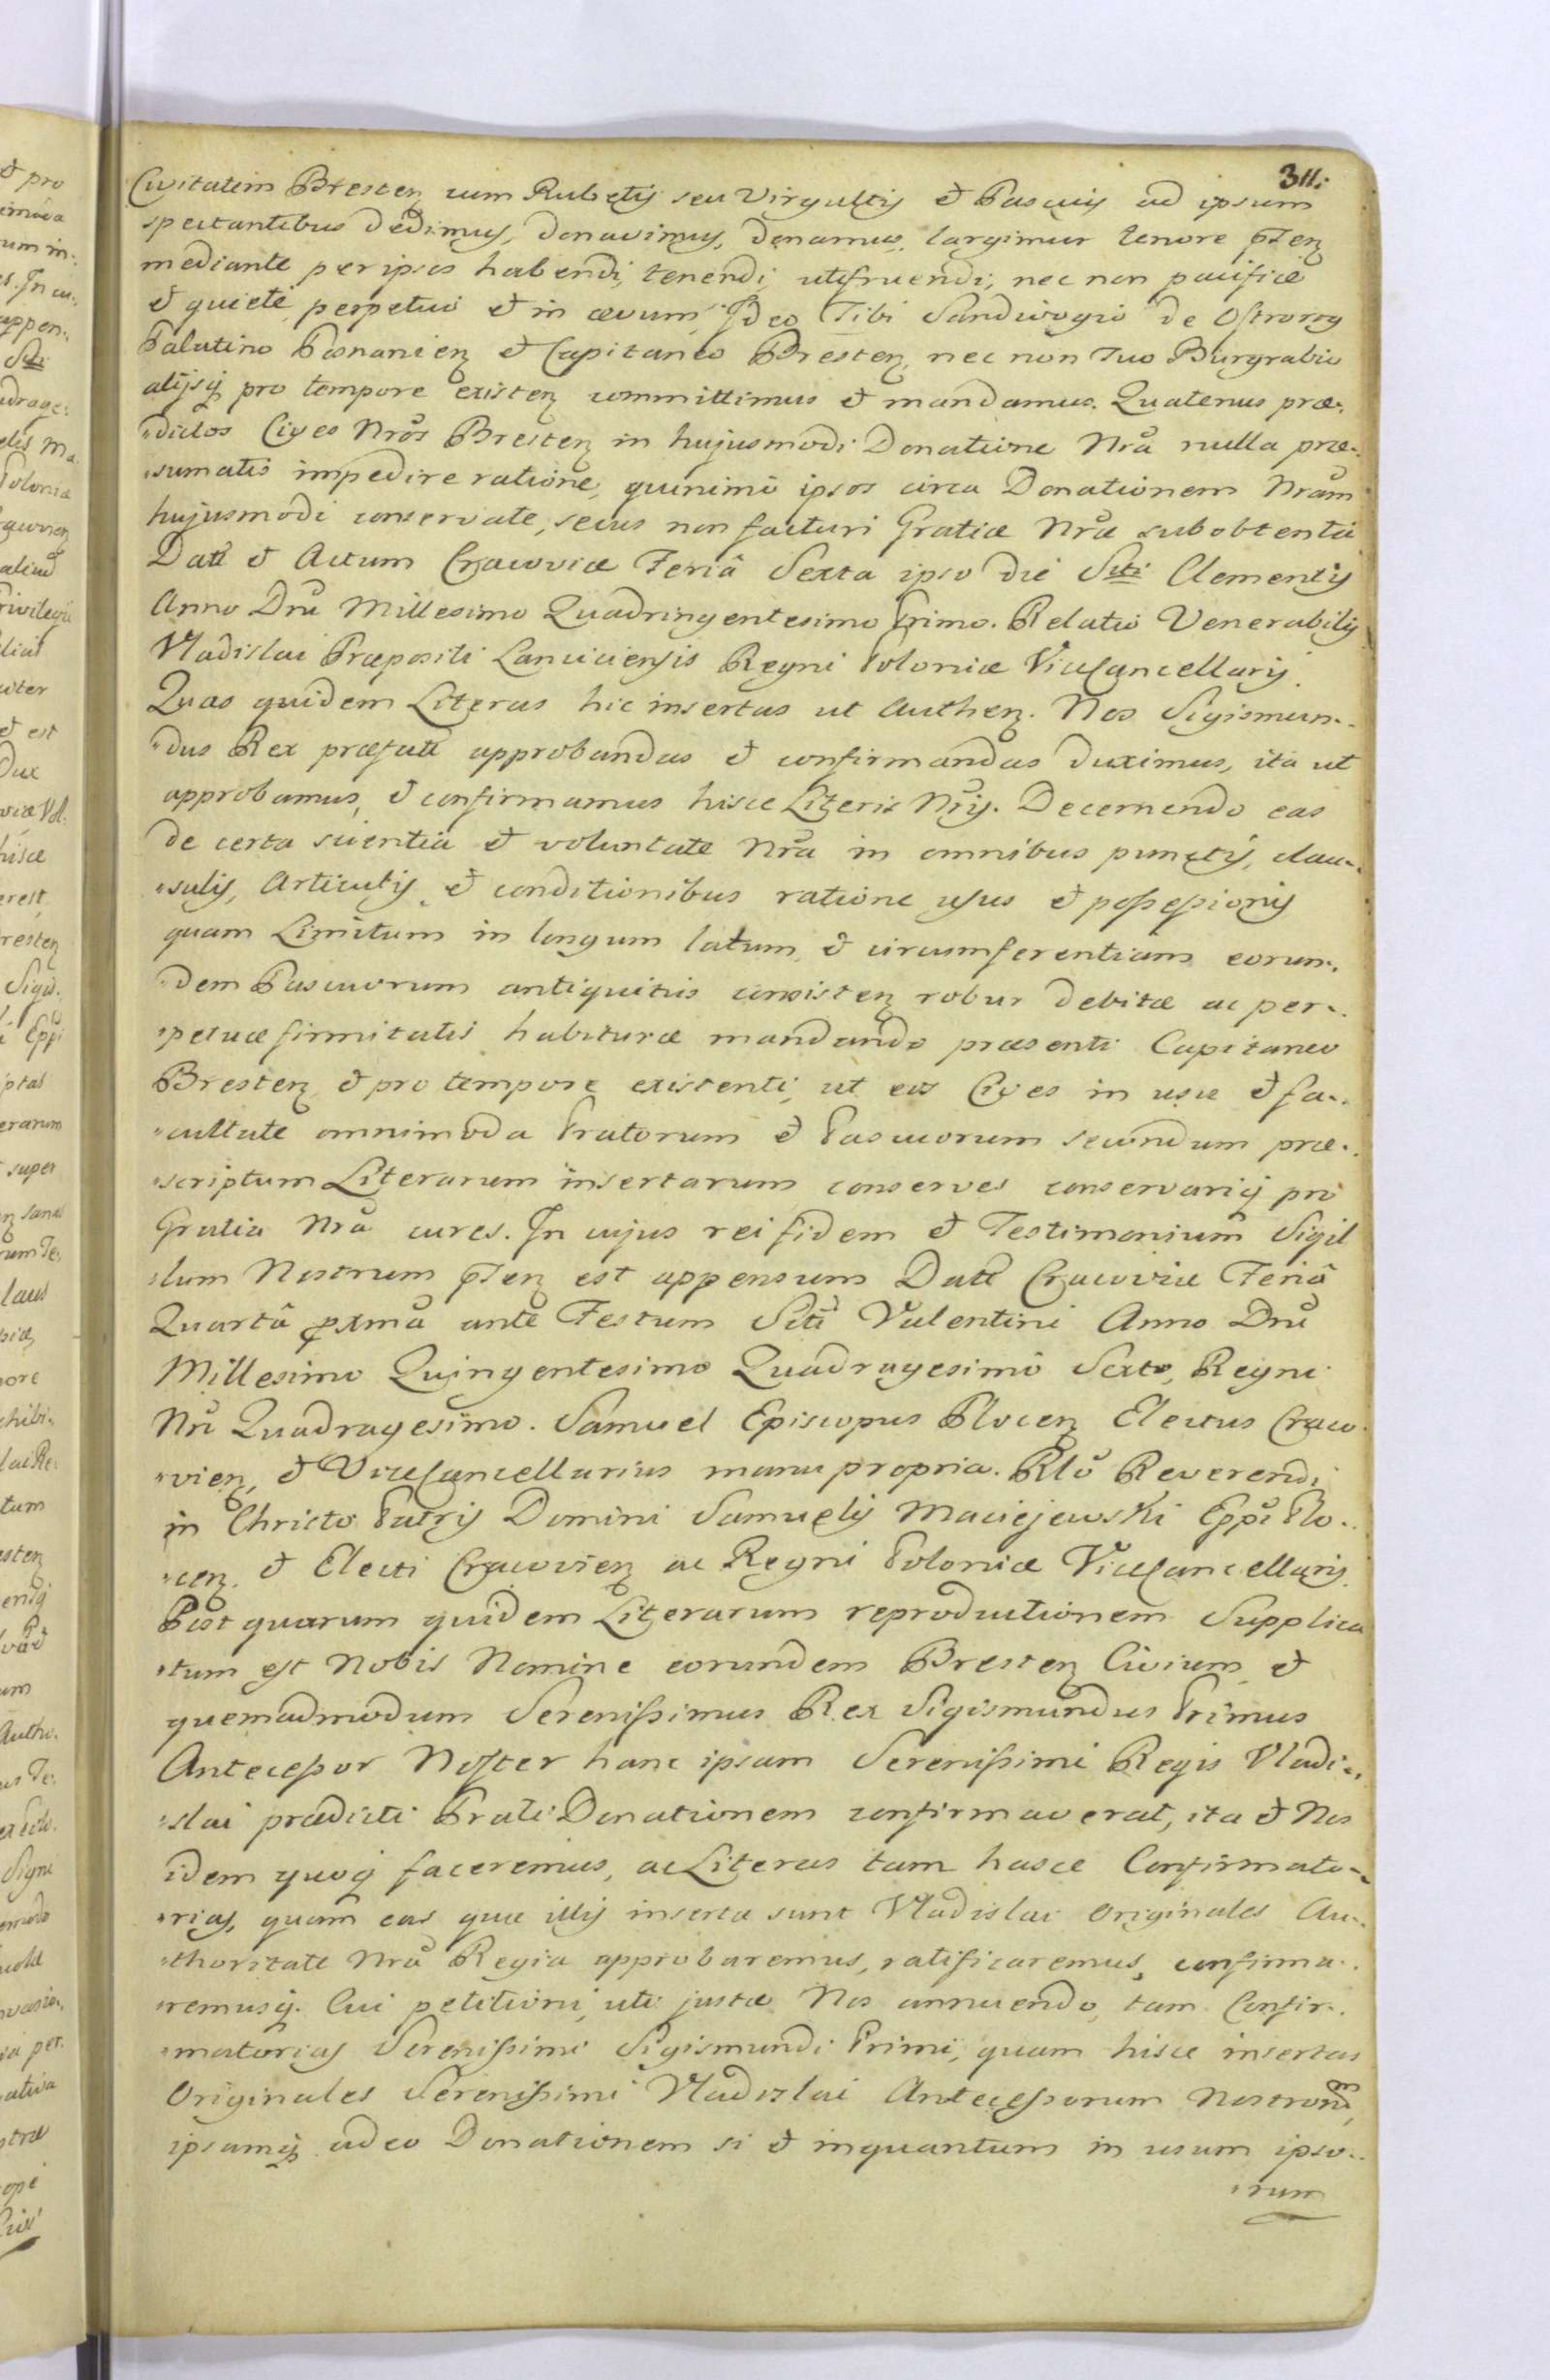 311.
Civitatem Bresteñ cum Rubetis seu Virgultis et Pascuis ad ipsum
spectantibus dedimus, donavimus, donamus, largimur tenore p̃señ
mediante per ipsos habendi, tenendi, utifruendi, nec non pacifice
et quiete perpetuo et in ævum, Ideo Tibi Sandivogio de Ostrorog
Palatino Posnanień et Capitaneo Bresteñ, nec non Tuo Burgrabio
alijsq pro tempore existeñ committimus et mandamus. Quatenus præ-
-dictos Cives Nros Bresteñ in hujusmodi Donatione Nra nulla præ-
-sumatis impedire ratione, quinimo ipsos circa Donationem Nram
hujusmodi conservate, secus non facturi Gratiæ Nræ sub obtentu
Datt et Actum Cracoviæ Feriâ Sexta ipso die Scti Clementis
Anno Dni Millesimo Quadringentesimo Primo. Relatio Venerabilis
Vladislai Præpositi Lanciciensis Regni Poloniæ ViceCancellarij.
Quas quidem Literas hic insertas ut Autheñ. Nos Sigismun-
-dus Rex præfatt approbandas et confirmandas duximus, ita ut
approbamus, et confirmamus hisce Literis Nris. Decernendo eas
de certa scientia et voluntate Nra in omnibus punctis, clau-
-sulis, Articulis, et conditionibus ratione usus et possessionis
quam Limitum in longum latum, et circumferentiam eorun-
-dem Pascuorum antiquitus consisteñ robur debitæ ac per-
-petuæ firmitatis habituræ mandando præsenti Capitaneo
Bresteñ et pro tempore existenti, ut eos Cives in usu et fa-
-cultate omnimoda Pratorum et Pascuorum secundum præ-
-scriptum Literarum insertarum conserves conservariq pro
Gratia Nra cures. In cujus rei fidem et Testimonium Sigil
-lum Nostrum p̃señ est appensum Datt Cracoviæ Feriâ
Quartâ pxma ante Festum Scti Valentini Anno Dni
Millesimo Quingentesimo Quadragesimo Sexto, Regni
Nri Quadragesimo. Samuel Episcopus Ploceñ Electus Craco-
-vień, et ViceCancellarius manu propria. Rlo Reverendi
in Christo Patris Domini Samuelis Maciejewski Eppi Plo-
-ceñ. et Electi Cracovień ac Regni Poloniæ ViceCancellarij.
Post quarum quidem Literarum reproductionem Supplica
-tum est Nobis Nomine eorundem Bresteñ Civium, et
quemadmodum Serenissimus Rex Sigismundus Primus
Antecessor Noster hanc ipsam Serenissimi Regis Vladi-
-slai prædicti Prati Donationem confirmaverat, ita et Nos
idem quoq faceremus, ac Literas tam hasce Confirmato-
-rias, quam eas quæ illis inserta sunt Vladislai Originales Au-
-thoritate Nra Regia approbaremus, ratificaremus, confirma-
-remusq. Cui petitioni, uti justæ Nos annuendo, tam Confir-
-matorias Serenissimi Sigismundi Primi, quam hisce insertas
Originales Serenissimi Vladislai Antecessorum Nostrorum,
ipsamq adeo Donationem si et inquantum in usum ipso-
-rum